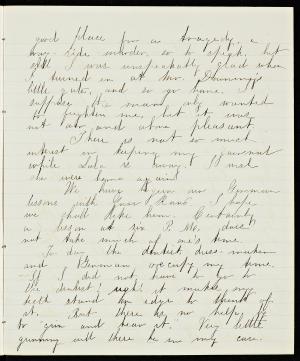 good place for a tragedy, a
way-side murder, so to speak, but
still I was unspeakably glad when
I turned in at Mr. Dunning's
little gate, and so go home. I
suppose the man only wanted
to frighten me, but it was
not at and alone pleasant.
There is not so much
interest in keeping my journal
while is away. I wish
she were home again!
We have begun our German
lessons with Frau I hope
we shall like them. Certainly
a lesson at six P.M. does
not take much of one's time.
To day the dentist, dress-maker
and German, occupy my time.
If I did not have to go to
the dentist! ugh! it makes my
teeth stand on edge to think of
it. But there is no help but
to grin and bear it. Very little
grinning will there be in my case.